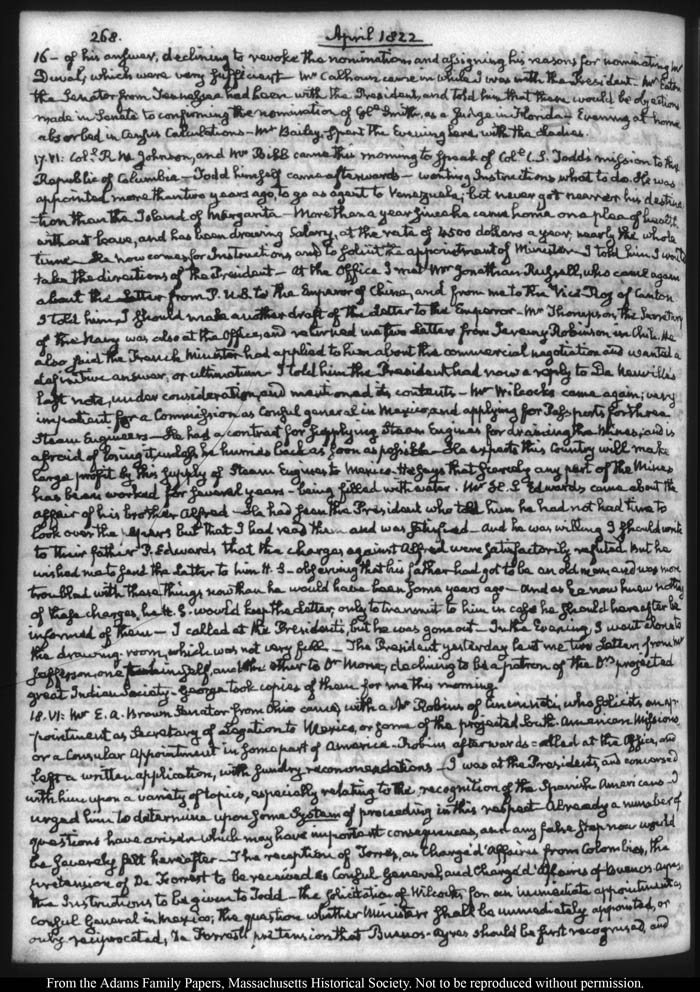 268. April 1822
16 — of his answer, declining to revoke the nomination and assigning his reasons for nominating Mr
Duval, which were very sufficient — Mr Calhoun came in while I was with the President. Mr Eaton
the Senator from Tennessee had been with the President, and told him that there would be objections
made in Senate to confirming the nomination of Col. Smith, as a Judge in Florida — Evening at home
absorbed in Census Calculations — Mrs Bailey spent the Evening here with the Ladies.
17. VI: Col. R. M. Johnson, and Mr Bibb came this morning to speak of Col. C. S. Todd's mission to the
Republic of Columbia — Todd himself came afterwards — wanting Instructions what to do. He was
appointed more than two years ago, to go as agent to Venezuela; but never got nearer his destina-
tion than the Island of Margarita — More than a year since he came home on a plea of health
without leave, and has been drawing Salary, at the rate of 4500 dollars a year, nearly the whole
time. He now comes for Instructions and to solicit the appointment of Minister — I told him I would
take the directions of the President — At the Office I met Mr Jonathan Russell, who came again
about the Letter from P. U.S. to the Emperor of China, and from me to the Vice-Roy of Canton
I told him, I should make another draft of the Letter to the Emperor — Mr Thompson, the Secretary
of the Navy was also at the Office, and returned me two Letters from Jeremy Robinson in Chili. He
also said the French Minister had applied to him about the commercial negotiation and wanted a
definitive answer, or ultimatum — I told him the President had now a reply to De Neuville's
last note, under consideration, and mentioned its contents — Mr Wilcocks came again; very
impatient for a Commission as Consul general in Mexico, and applying for Passports for three
Steam Engineers — He had a contract for supplying Steam Engines for draining the Mines; and is
afraid of losing it unless he hurries back as soon as possible — He expects this Country will make
large profit by this supply of Steam Engines to Mexico — He says that scarcely any part of the Mines
has been worked for several years — being filled with water. Mr H. S. Edwards came about the
affair of his brother Alfred — He had seen the President who told him he had not had time to
look over the papers but that I had read them and was satisfied — And he was willing I should write
to their father P. Edwards that the charges against Alfred were satisfactorily refuted. But he
wished me to send the Letter to him H. S — observing that his father had got to be an old man, and was more
troubled with these things now than he would have been some years ago — And as he now knew nothing
of these charges, he H. S. would keep the Letter, only to transmit to him in case he should hereafter be
informed of them — I called at the President's, but he was gone out — In the Evening, I went alone to
the drawing-room, which was not very full — The President yesterday lent me two Letters from Mr
Jefferson, one to himself, and the other to Dr Morse, declining to be a patron of the Dr's projected
great Indian Society — George took copies of them for me this morning.
18. VI: Mr E. A. Brown Senator from Ohio came, with a Mr Robins of Cincinnati, who solicits an ap-
pointment as Secretary of Legation to Mexico, or some of the projected South-American Missions,
or a Consular Appointment in some part of America — Robins afterwards called at the Office, and
left a written application, with sundry recommendations — I was at the President's, and conversed
with him upon a variety of topics, especially relating to the recognition of the Spanish Americans — I
urged him to determine upon some System of proceeding in this respect — Already a number of
questions have arisen which may have important consequences, and any false step now would
be severely felt hereafter — The reception of Torres, as Chargé d'Affaires from Colombia, the
pretension of De Forrest to be received as Consul General, and Chargé d'Affaires of Buenos-Ayres
the Instructions to be given to Todd — the solicitation of Wilcocks for an immediate appointment as
Consul General in Mexico; the question whether Ministers shall be immediately appointed, or
only reciprocated, De Forrest's pretension that Buenos-Ayres should be first recognised, and
From the Adams Family Papers, Massachusetts Historical Society. Not to be reproduced without permission.